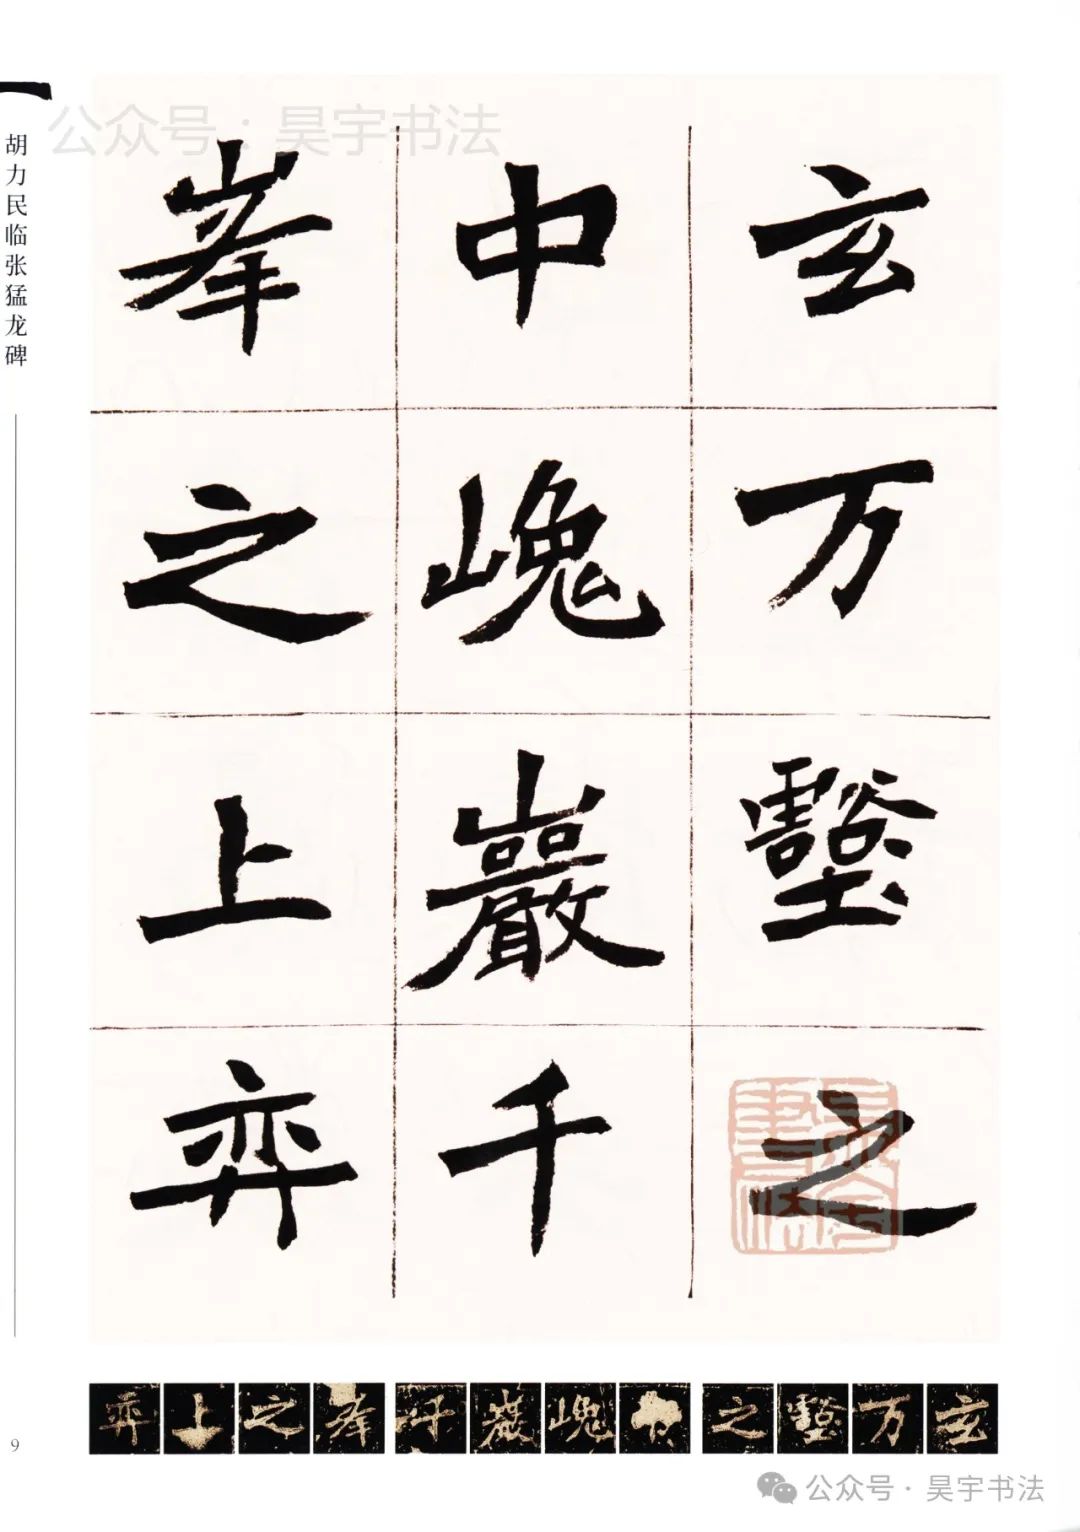 公众号·昊宇书法
胡力民临张猛龙碑
玄万壑之
中巍巖千
峯之上弈
弈上之峯
千巖巍中
之壑万玄
9
公众号·昊宇书法